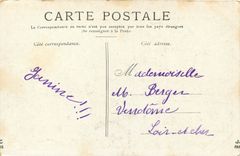 CARTE POSTALE
La Correspondance au recto n'est pas acceptée par tous les pays étrangers
Se renseigner à la Poste
Côté correspondance.
Côté adresse.
Janine!!!
Mademoiselle
M. Berger
Vendôme
Loir-et-cher